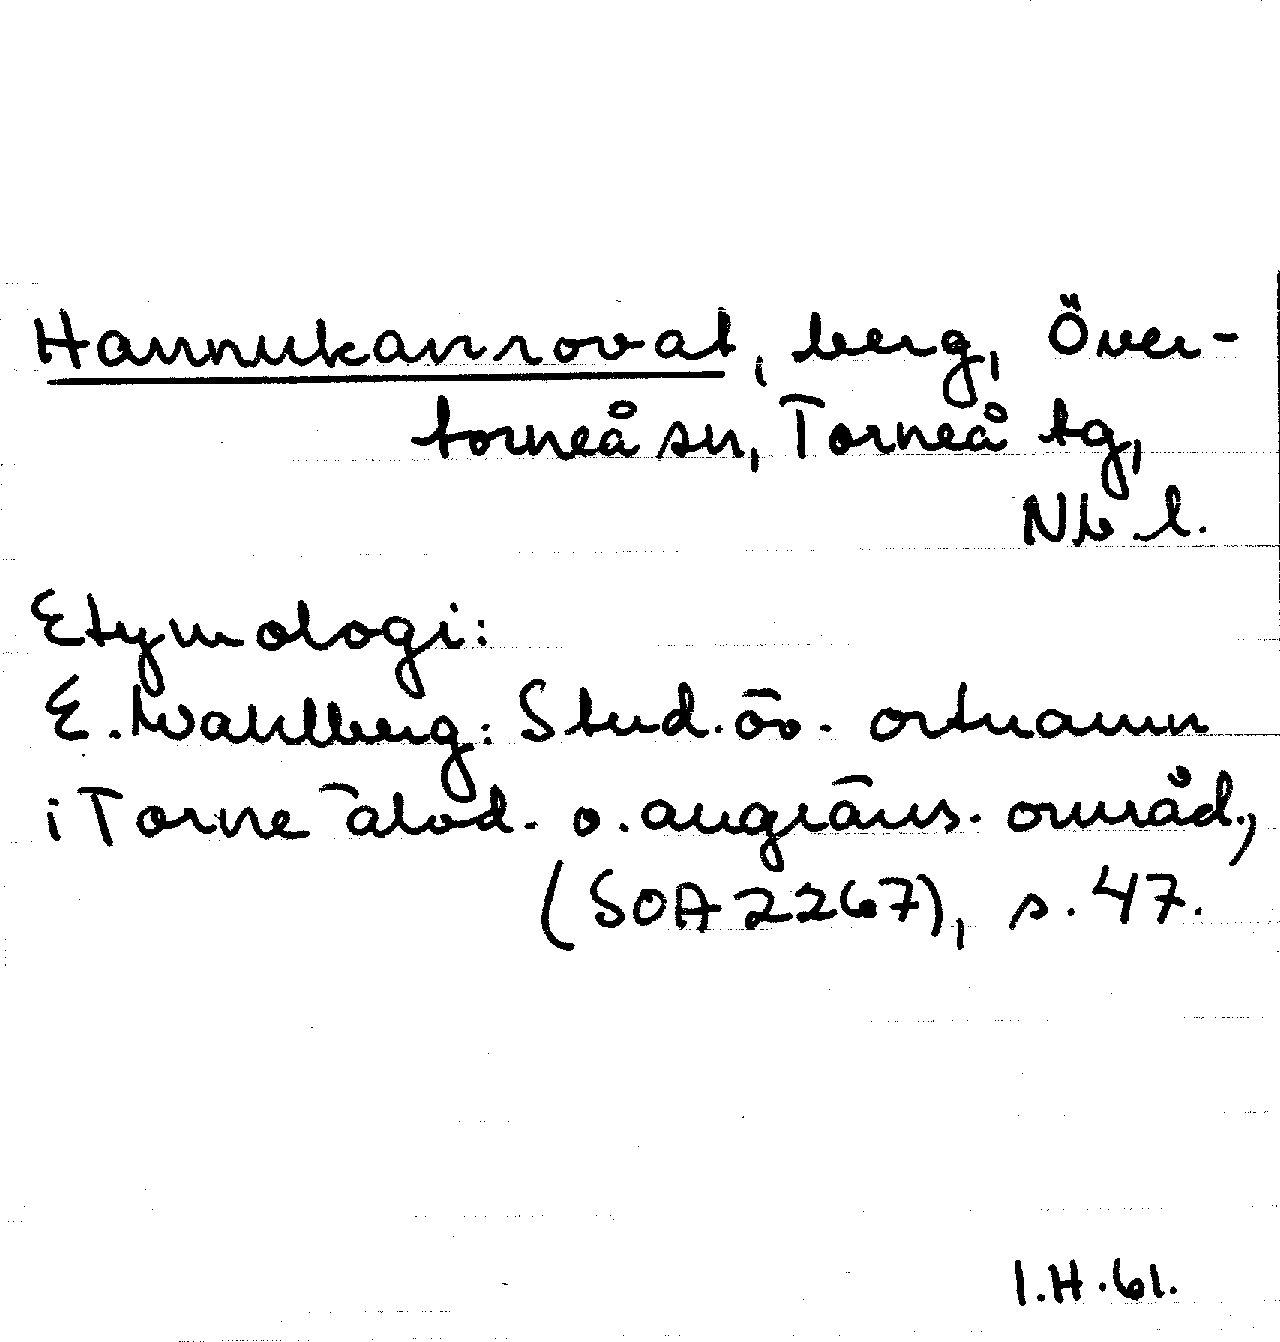 Hannukanrovat, berg, Över-
torneå sn, Torneå tg,
Nb.l.
Etymologi:
E. Wahlberg: Stud. öv. ortnamn
i Torne älvd. o. angräns. områd.,
(SOA 2267), s. 47.
I.H.61.